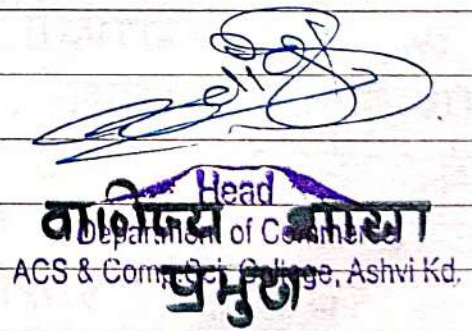 Head
वाणिज्य शाखा
Department of Commerce
ACS & Comp. Sci. College, Ashvi Kd.
प्रमुख